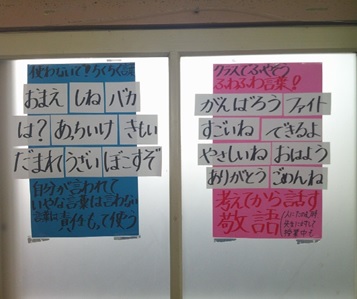 使わないで!ちくちく言葉
おまえ しね バカ
は? あっちいけ きもい
だまれ うざい ぼこすぞ
自分が言われて
いやな言葉は言わない
言葉は責任もって使う
クラスでふやそう
ふわふわ言葉!
がんばろう ファイト
すごいね できるよ
やさしいね おはよう
ありがとう ごめんね
考えてから話す
敬語
授業中も